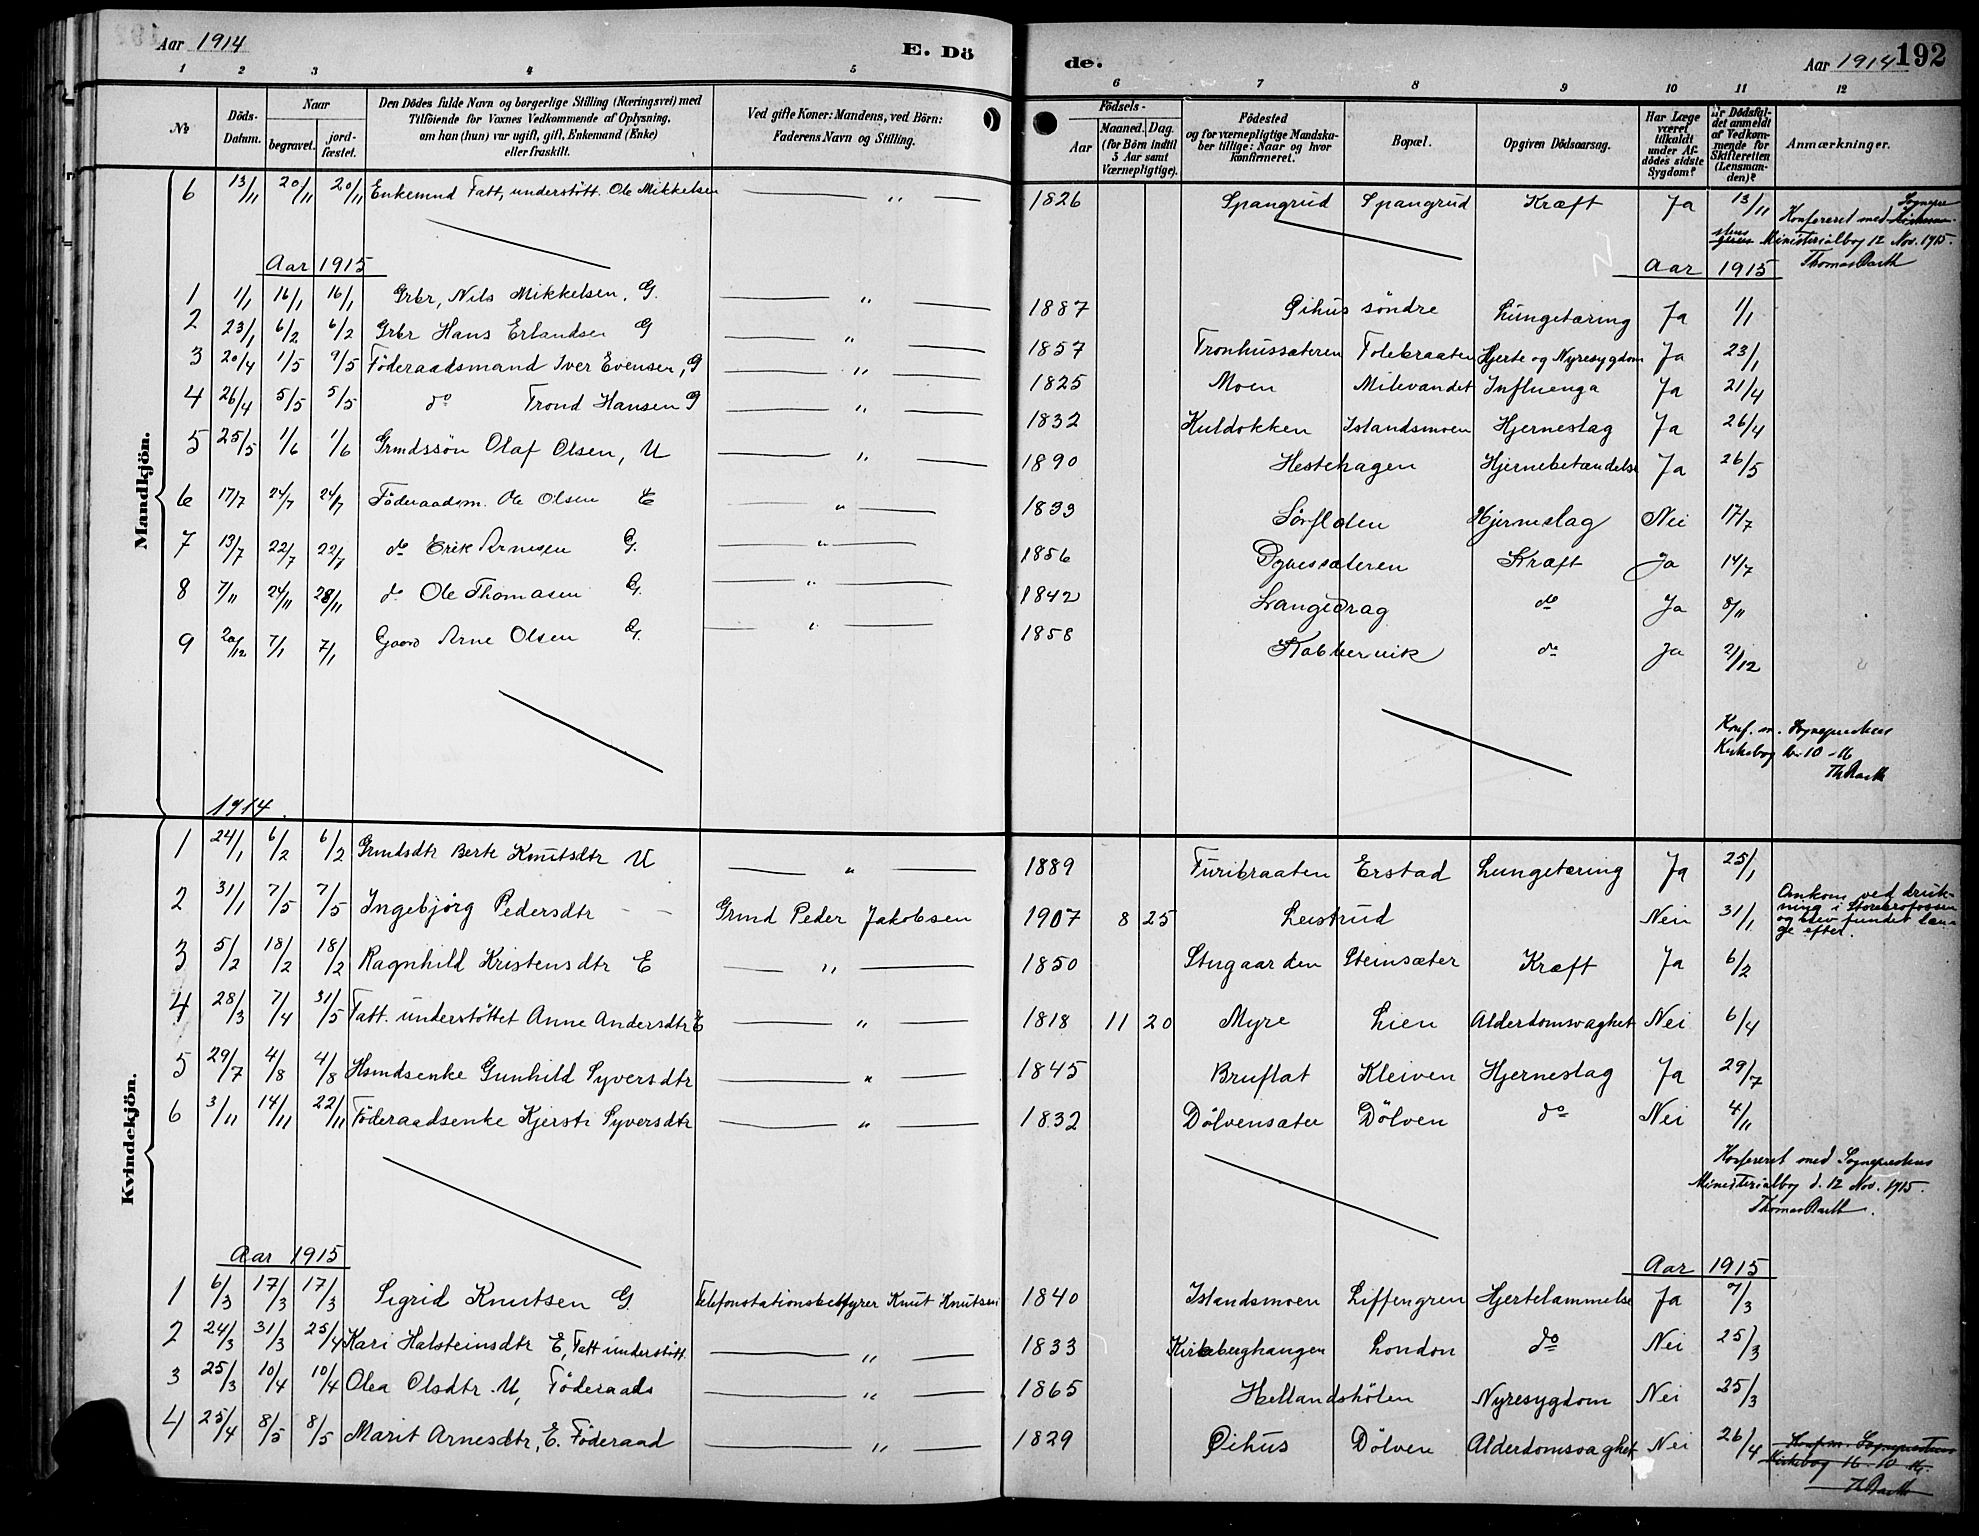 Aar 1914 E. Dö
de. Aar 1914 192
1 2 3 4 5 6 7 8 9 10 11 12
№ Döds-Datum. Naar begravet. jordfæstet. Den Dödes fulde Navn og borgerlige Stilling (Næringsvei) med Tilföiende for Voxnes Vedkommende af Oplysning, om han (hun) var ugift, gift, Enkemand (Enke) eller fraskilt. Ved gifte Koner: Mandens, ved Börn: Faderens Navn og Stilling. Födsels- Aar Maaned. Dag. (for Börn indtil 5 Aar samt Værnepligtige). Födested og for værnepligtige Mandskaber tillige: Naar og hvor konfirmeret. Bopæl. Opgiven Dödsaarsag. Har Læge været tilkaldt under Afdödes sidste Sygdom? Er Dödsfaldet anmeldt af Vedkommende for Skifteretten (Lensmanden)? Anmærkninger.
Mandkjön.
6 13/11 20/11 20/11 Enkemnd Fatt, understött. Ole Mikkelsen — " — 1826 Spangrud Spangrud Kræft Ja 13/11
Konfereret med Sognepre
stens Ministerialbog 12 Nov. 1915.
Thomas Barth
Aar 1915 Aar 1915
1 1/1 16/1 16/1 Grbr, Nils Mikkelsen, G. — " — 1887 Pihus söndre Lungetæring Ja 1/1
2 23/1 6/2 6/2 Grbr Hans Erlandsen G — " — 1857 Tronhussæteren Tolebraaten Hjerte og Nyresygdom Ja 23/1
3 20/4 1/5 9/5 Föderaadsmand Iver Evensen, G — " — 1825 Moen Milevandet Influenga Ja 21/4
4 26/4 5/5 5/5 do Trond Hansen G — " — 1832 Kuldokken Islandsmoen Hjerneslag Ja 26/4
5 25/5 1/6 1/6 Grmdssön Olaf Olsen, U — " — 1890 Hestehagen Hjernebetændelse Ja 26/5
6 17/7 24/7 24/7 Föderaadsm. Ole Olsen E — " — 1833 Sörfloten Hjerneslag Nei 17/7
7 13/7 22/7 22/7 do Erik Arnesen G. — " — 1856 Dguessæteren Kræft Ja 14/7
8 7/11 24/11 28/11 do Ole Thomasen G. — " — 1842 Langedrag do Ja 8/11
9 20/12 7/1 7/1 Gaard Arne Olsen G. — " — 1858 Kabbervik do Ja 2/12
Konf. m. Sogneprestens
Kirkebog 16-10-16
Th Barth
1914.
Kvindekjön.
1 24/1 6/2 6/2 Grmdsdtr Berte Knutsdtr U — " — 1889 Furibraaten Erstad Lungetæring Ja 25/1
2 31/1 7/5 7/5 Ingebjörg Pedersdtr - - Grmd Peder Jakobsen 1907 8 25 Leistrud Nein 31/1 Omkom ved druk-
ning i Storebrofossen
og blev fundet læn-
ge efter.
3 5/2 18/2 18/2 Ragnhild Kristensdtr E — " — 1850 Stugaarden Steinsæter Kræft Ja 6/2
4 28/3 7/4 31/5 Fatt. understöttet Anne Andersdtr E — " — 1818 11 20 Myre Lien Alderdomsvaghet Nei 6/4
5 29/7 4/8 4/8 Hsmdsenke Gunhild Syversdtr — " — 1845 Bruflat Kleiven Hjerneslag Ja 29/7
6 3/11 14/11 22/11 Föderaadsenke Kjersti Syversdtr — " — 1832 Dölvensæter Dölven do Nei 4/11
Konfereret med Sogneprestens
Ministerialbog d. 12 Nov. 1915.
Thomas Barth.
Aar 1915 Aar 1915
1 6/3 17/3 17/3 Sigrid Knutsen G. Telefonstationsbestyrer Knut Knutsen 1840 Islandsmoen Liffengren Hjertelammelse Ja 7/3
2 24/3 31/3 25/4 Kari Halsteinsdtr E, Fatt understött. — " — 1833 Kirkeberghangen London do Nei 25/3
3 25/3 10/4 10/4 Olea Olsdtr U, Föderaads — " — 1865 Hellandshölen Nyresygdom Nei 25/3
4 25/4 8/5 8/5 Marit Arnesdtr, E. Föderaad — " — 1829 Pihus Dölven Alderdomsvaghet Nei 26/4
Konf. m. Sogneprestens
Kirkebog 16-10-16
Th Barth